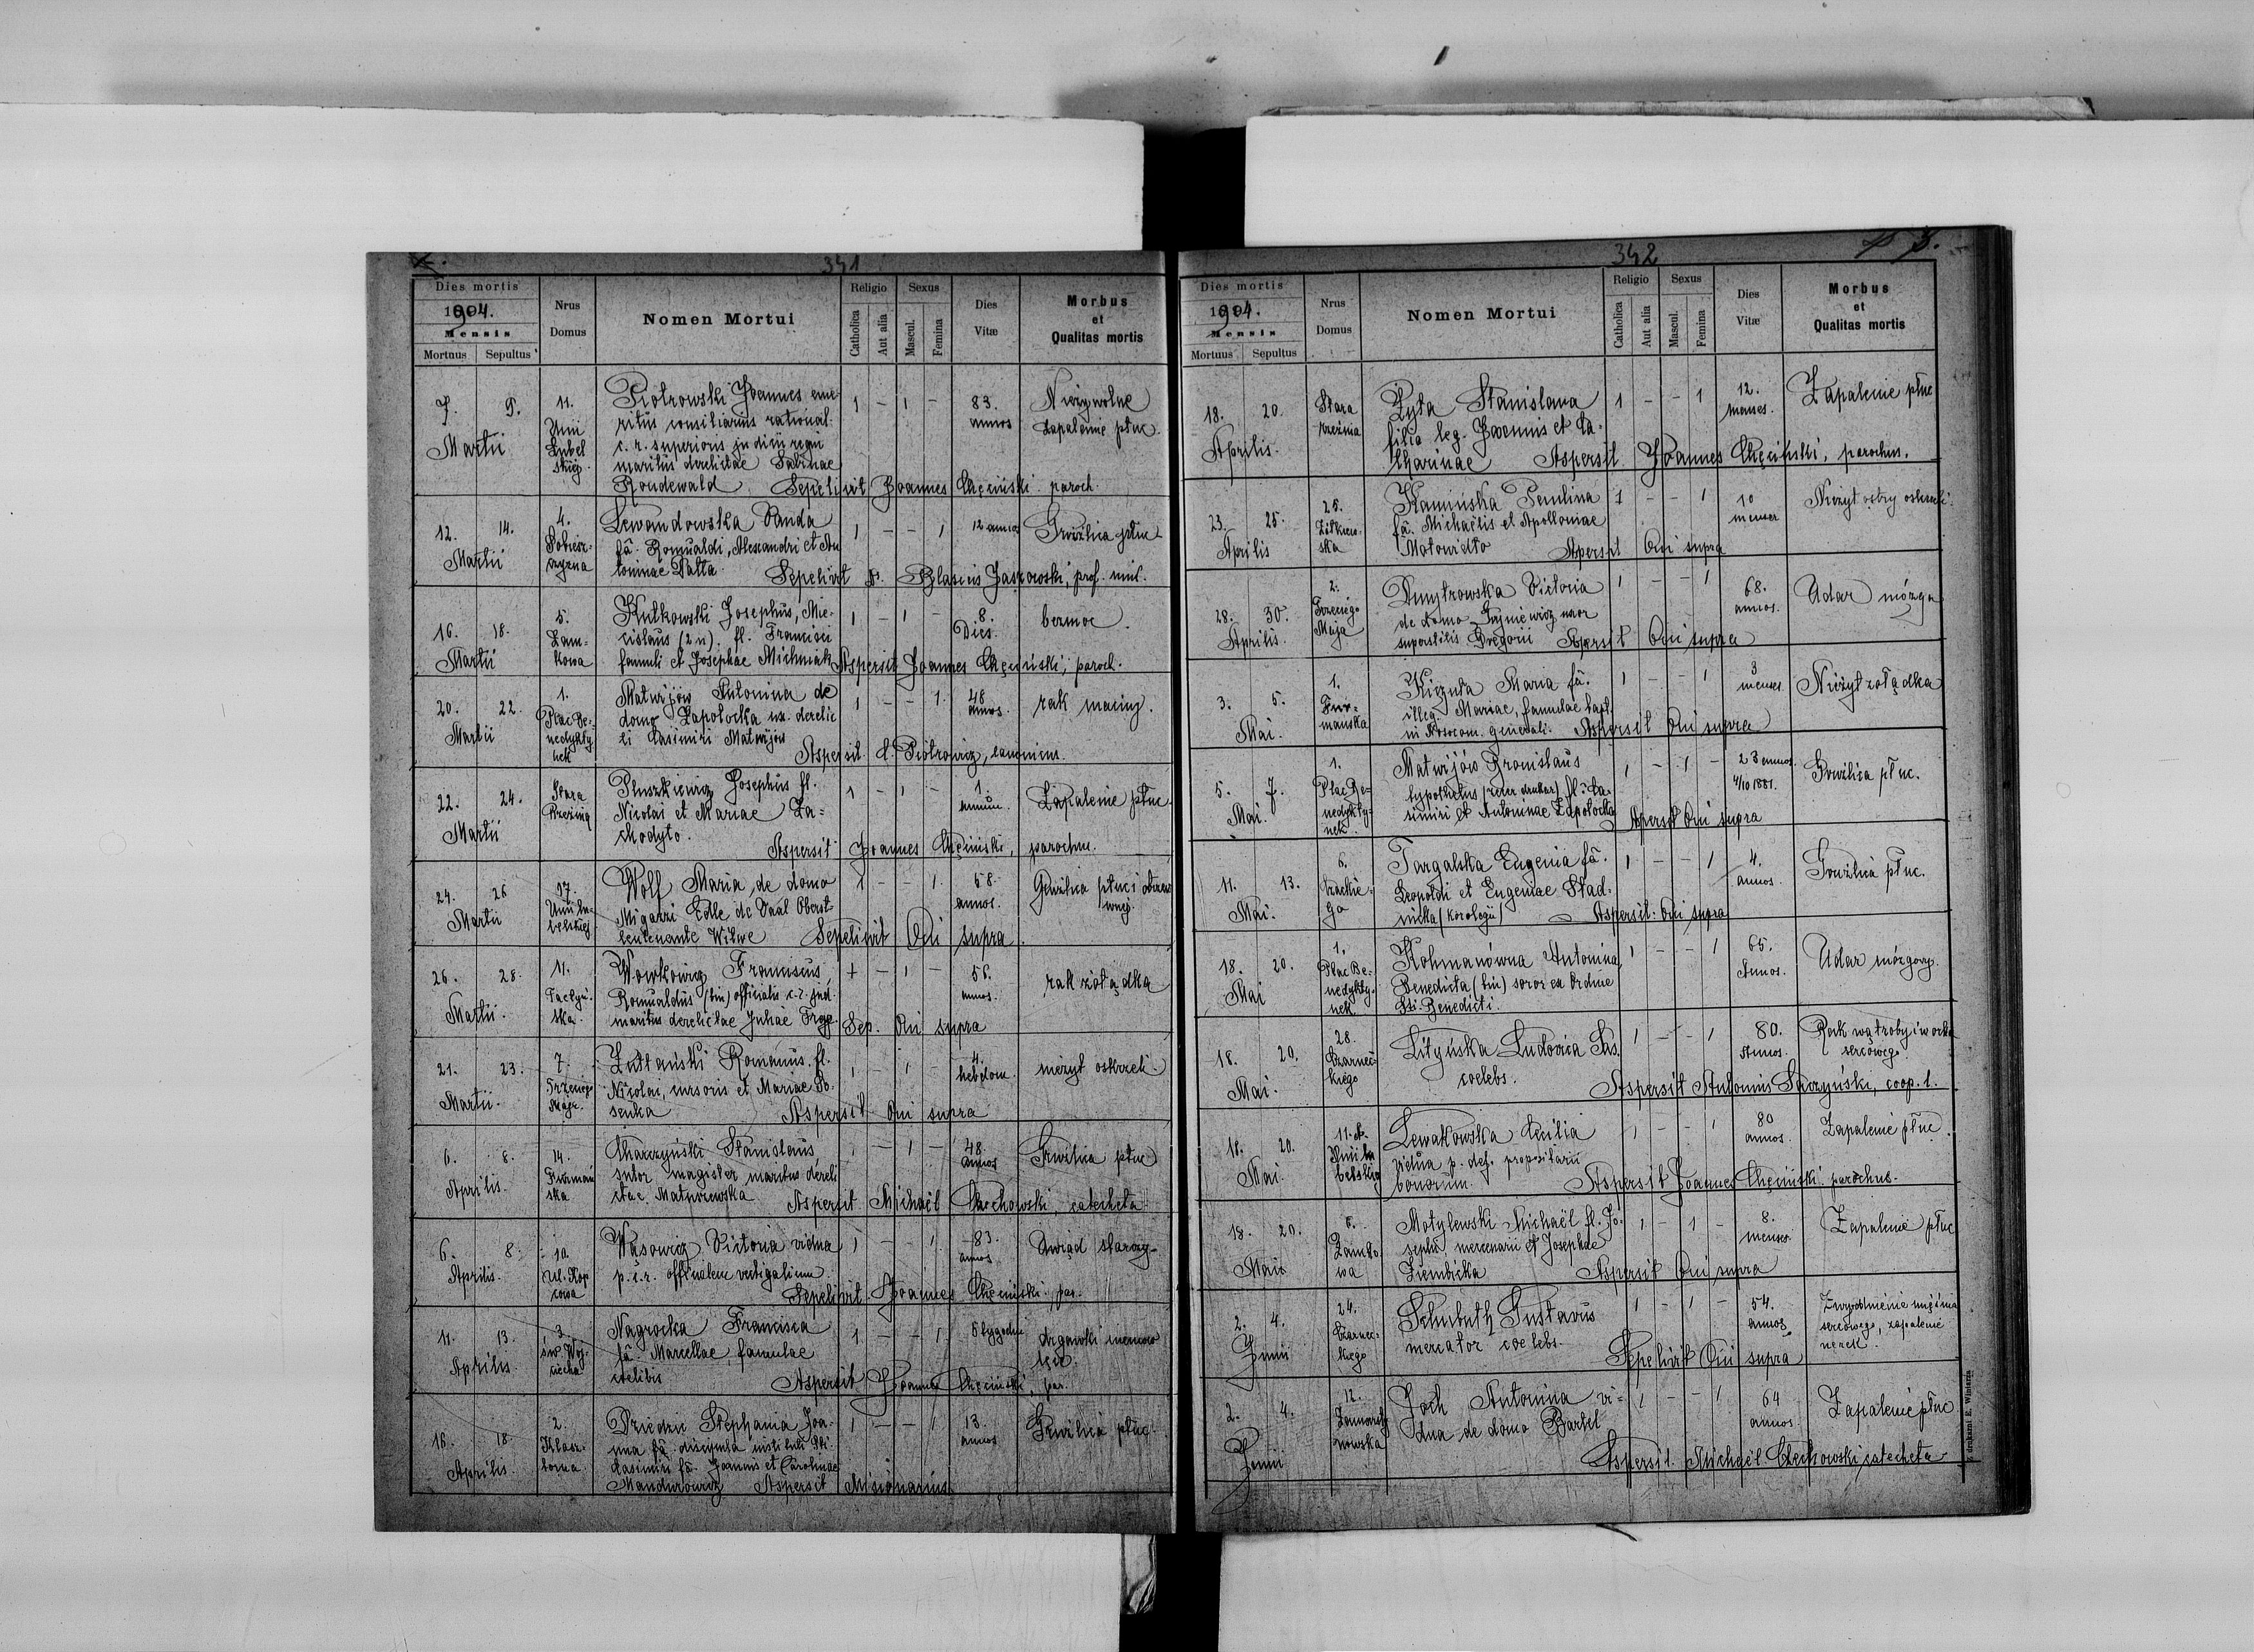 341
Dies mortis
1904.
Mensis
Mortuus Sepultus
Nrus
Domus
Nomen Mortui
Religio
Catholica
Aut alia
Sexus
Mascul.
Femina
Dies
Vitæ
Morbus
et
Qualitas mortis
7. 9.
Martii
11.
Unii
Lubel
skiej.
Piotrowski Joannes eme-
ritus consiliarius rational.
c. r. superioris judicii regii
maritus derelictae Sabinae
Rondewald. Sepelivit Joannes Chęciński paroch.
1 - 1 -
83.
annos
zapalenie płuc.
12. 14.
Martii
4.
Lewandowska Vanda
fa. Romualdi, Alexandri et An
toninae Patta. Sepelivit
1 - - 1
12 annos
Gruźlica płuc
16. 18.
Martii
5.
Zam-
kowa
Kutkowski Josephus, Mie-
cislaus (2 n), fl. Francisci
famuli et Josephae Michniak Aspersit Joannes Chęciński, paroch.
1 - 1 -
8.
Dies.
bezmoc.
20. 22.
Martii
1.
Plac Be-
nedykty
nek
Matwijów Antonina de
domo Zapotocka ux. derelic
ti Casimiri Matwijów
Aspersit C. Piotrowicz, canonicus.
1 - - 1
48
annos.
rak macicy.
22. 24.
Martii
Stara
Rzeźnia
Pluszkiewicz Josephus fl.
Nicolai et Mariae Za-
chodyto.
Aspersit Joannes Chęciński, parochus.
1 - 1 -
1.
annum.
Zapalenie płuc
24. 26
Martii
17.
Unii lu-
belskiej
Wolf Maria de domo
Migazzi Edle de Vaal Oberst-
leutenants Witwe Sepelivit Qui supra.
1 - - 1
58.
annos.
Gruźlica płuc i otrzew
nej.
26. 28.
Martii.
11.
Wowkowicz Franciscus,
Romualdus (bin) officialis c. r. jud.
maritus derelictae Juliae
Sep. Qui supra
1 - 1 -
56.
annos.
rak żołądka
21. 23.
Martii.
7.
Trzeciego
Maja.
Romanus fl.
Nicolai, cursoris et Mariae So-
senka Aspersit Qui supra
1 - 1 -
4.
hebdom.
nieżyt oskrzeli.
6. 8.
Aprilis.
14.
Furmań
ska
Charzyński Stanislaus
sutor magister maritus dereli
ctae Matuszewska Aspersit Michaël Czechowski, catecheta
1 - 1 -
48
annos
Gruźlica płuc
6. 8.
Aprilis.
10.
Ul. Kop
cowa
Wąsowicz Victoria vidua
p. c. r. officialem vectigalium
Sepelivit Joannes Chęciński, par.
1 - - 1
83.
annos
Uwiąd starczy
11. 13.
Aprilis.
3.
św. Woj-
ciecha
Nagrocka Francisca
fa. Marcellae, famulae
caelibis Aspersit Joannes Chęciński, par.
1 - - 1
5 tygodni
drgawki
16. 18.
Aprilis.
2.
Klasz-
torna.
Dziedzic Stephania Joa-
nna fa. discipula instituti Sti.
Casimiri fa. Joannis et Carolinae
Mandurowicz Aspersit Misionarius
1 - - 1
13.
annos
Gruźlica płuc.
342
3.
Dies mortis
1904.
Mensis
Mortuus Sepultus
Nrus
Domus
Nomen Mortui
Religio
Catholica
Aut alia
Sexus
Mascul.
Femina
Dies
Vitæ
Morbus
et
Qualitas mortis
18. 20.
Aprilis.
Stara
rzeźnia
Żyła Stanislava
filia leg. Joannis et Ca-
tharinae Aspersit Joannes Chęciński, parochus.
1 - - 1
12.
menses.
Zapalenie płuc
23. 25.
Aprilis
25.
Żółkiew-
ska
Kamińska Paulina
fa. Michaëlis et Apolloniae
Aspersit Qui supra
1 - - 1
10
menses
Nieżyt ostry oskrzeli.
28. 30.
Aprilis.
2.
Trzeciego
Maja
Dmytrowska Victoria
de domo Hryniewicz uxor
superstitis Gregorii Aspersit Qui supra
1 - - 1
68.
annos.
Udar mózgu
3. 5.
Mai.
1.
Fur-
mańska
Maria fa.
illeg. Mariae, famulae bapt.
in Nosocom. generali. Aspersit Qui supra
1 - - 1
3
menses.
Nieżyt żołądka
5. 7.
Mai.
1.
Plac Be-
nedykty-
nek.
Matwijów Bronislaus
typothetus (zecer drukar) fl. Ca-
simiri et Antoninae Zapotocka Aspersit Qui supra
1 - 1 -
23 annos.
4/10 1881.
Gruźlica płuc.
11. 13.
Mai.
6.
Czackie-
go
Targalska Eugenia fa.
Leopoldi et Eugeniae Stad-
nicka Aspersit Qui supra
1 - - 1
4.
annos.
Gruźlica płuc.
18. 20.
Mai
1.
Plac Be-
nedykty-
nek.
Kohmanówna Antonina,
Benedicta (bin) soror ex Ordine
Sti. Benedicti.
1 - - 1
65.
Annos.
Udar mózgowy.
18. 20.
Mai.
28.
Czarniec-
kiego
Lityńska Ludovica
coelebs.
Aspersit Antonius coop. 1.
1 - - 1
80.
Annos.
Rak wątroby i worka
sercowego.
18. 20.
Mai.
11. a.
Unii lu
belskiej
Lewakowska Cecilia
vidua p. def. propositarii
bonorum. Aspersit Joannes Chęciński parochus.
1 - - 1
80
annos.
Zapalenie płuc.
18. 20.
Maii
6.
Zamko-
wa
Motylewski Michaël fl. Jo-
sephi, mercenarii et Josephae
Ziembicka Aspersit Qui supra
1 - 1 -
8.
menses
Zapalenie płuc
2. 4.
Junii
24.
Czarniec-
kiego
Schubuth Gustavus
mercator coelebs.
Sepelivit Qui supra
1 - 1 -
54.
annos.
Zwyrodnienie mięśnia
sercowego, zapalenie
nerek.
2. 4.
Junii
12.
Joch Antonina vi-
dua de domo Bartel
Aspersit Michaël Czechowski catecheta
1 - - 1
64
annos
Zapalenie płuc
Z drukarni E. Winiarza